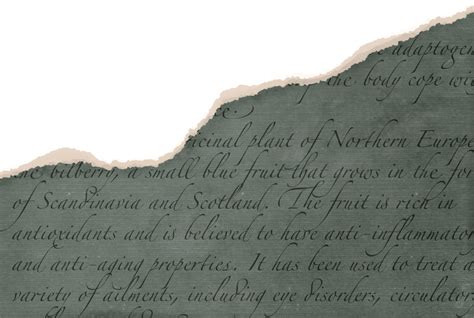 adaptogen
the body cope wi
e.
icinal plant of Northern Europe
bilberry, a small blue fruit that grows in the fo
of Scandinavia and Scotland. The fruit is rich in
antioxidants and is believed to have anti-inflammator
and anti-aging properties. It has been used to treat a
variety of ailments, including eye disorders, circulator